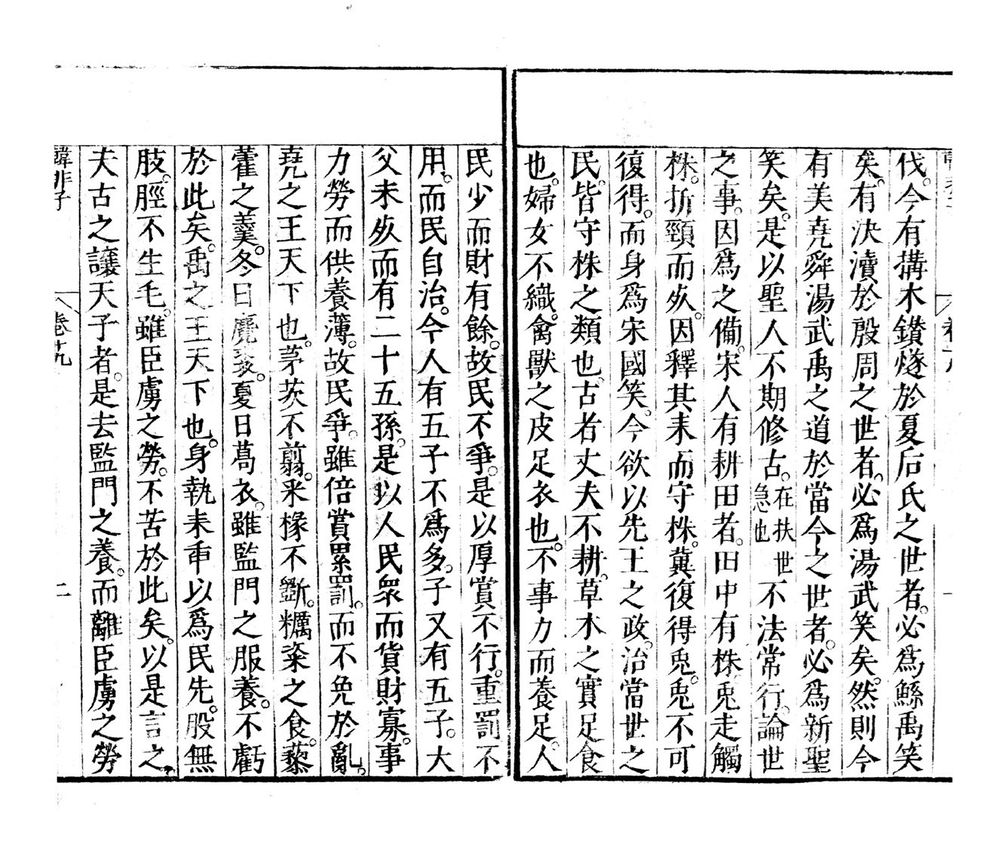 伐。今有搆木鑽燧於夏后氏之世者。必爲鯀禹笑
矣。有決瀆於殷周之世者。必爲湯武笑矣。然則今
有美堯舜湯武禹之道於當今之世者。必爲新聖
笑矣。是以聖人不期修古。在扶世急也不法常行。論世
之事。因爲之備。宋人有耕田者。田中有株兎走觸
株。折頸而死。因釋其耒而守株。冀復得兎。兎不可
復得。而身爲宋國笑。今欲以先王之政。治當世之
民。皆守株之類也。古者丈夫不耕。草木之實足食
也。婦女不織。禽獸之皮足衣也。不事力而養足。人
民少而財有餘。故民不爭。是以厚賞不行。重罰不
用。而民自治。今人有五子不爲多。子又有五子。大
父未死而有二十五孫。是以人民衆而貨財寡。事
力勞而供養薄。故民爭。雖倍賞累罰。而不免於亂。
堯之王天下也。茅茨不翦。采椽不斲。糲粢之食。藜
藿之羹。冬日麑裘。夏日葛衣。雖監門之服養。不虧
於此矣。禹之王天下也。身執耒臿以爲民先。股無
肢。脛不生毛。雖臣虜之勞。不苦於此矣。以是言之
夫古之讓天子者。是去監門之養。而離臣虜之勞
韓非子
卷十九
二